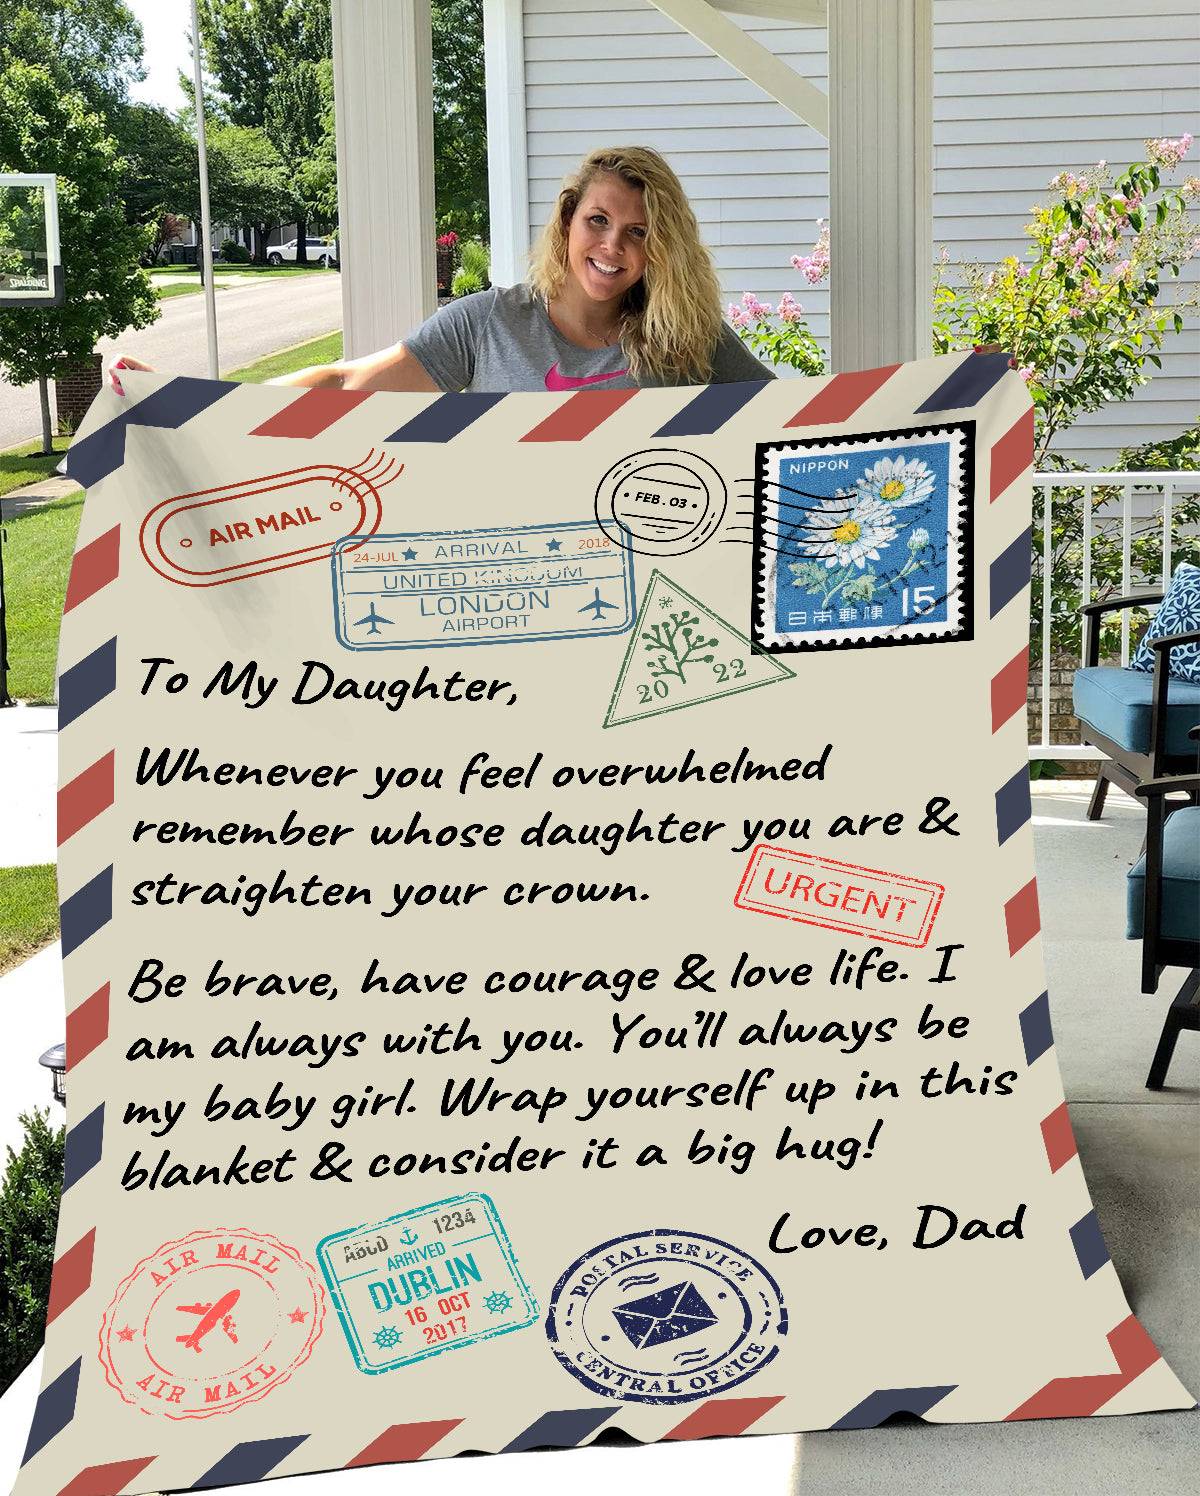 SPALDING
AIR MAIL
FEB. 03
NIPPON
24-JUL ARRIVAL 2018
UNITED KINGDOM
LONDON
AIRPORT
日本郵便 15
20 22
To My Daughter,
Whenever you feel overwhelmed
remember whose daughter you are &
straighten your crown.
URGENT
Be brave, have courage & love life. I
am always with you. You'll always be
my baby girl. Wrap yourself up in this
blanket & consider it a big hug!
Love, Dad
AIR MAIL
AIR MAIL
ABCD 1234
ARRIVED
DUBLIN
16 OCT
2017
POSTAL SERVICE
CENTRAL OFFICE